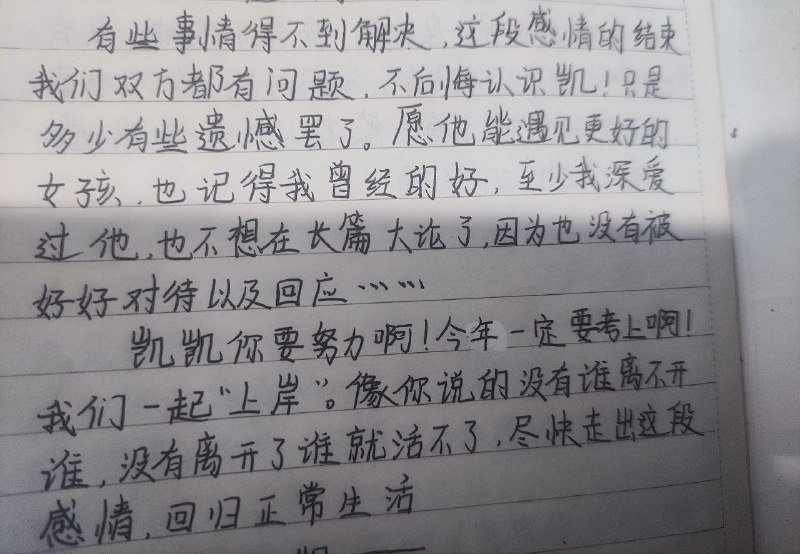 有些事情得不到解决，这段感情的结束
我们双方都有问题，不后悔认识凯！只是
多少有些遗憾罢了。愿他能遇见更好的
女孩，也记得我曾经的好，至少我深爱
过他，也不想在长篇大论了，因为也没有被
好好对待以及回应……
凯凯你要努力啊！今年一定要考上啊！
我们一起“上岸”。像你说的没有谁离不开
谁，没有离开了谁就活不了，尽快走出这段
感情，回归正常生活